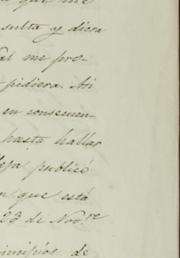 que me
sulta y diera
al me pro-
pidiera. Asi
en consecuen-
hasta hallar
leja publicó
n que está
23 de Nov.re
incipios de